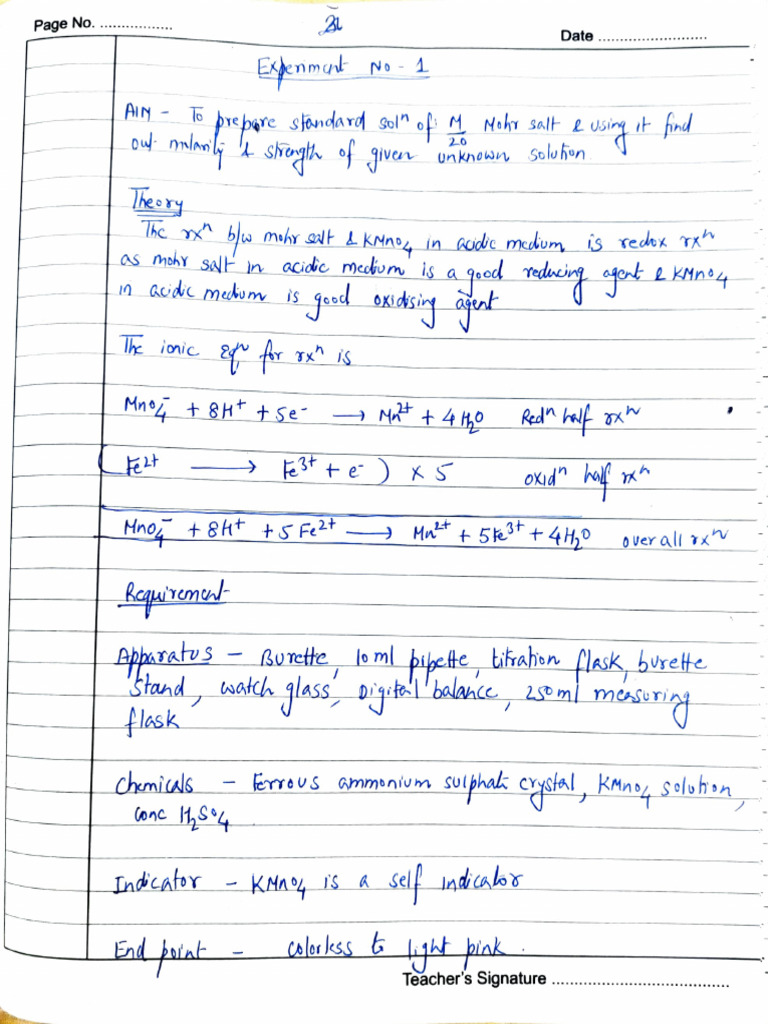 Page No. ................
Date ..........................
Experiment No - 1
AIM - To prepare standard solⁿ of M/20 Mohr salt & using it find
out molarity & strength of given unknown solution.
Theory
The rxⁿ b/w mohr salt & KMnO₄ in acidic medium is redox rxⁿ
as mohr salt in acidic medium is a good reducing agent & KMnO₄
in acidic medium is good oxidising agent
The ionic Eqⁿ for rxⁿ is
MnO₄⁻ + 8H⁺ + 5e⁻ → Mn²⁺ + 4H₂O Redⁿ half rxⁿ
( Fe²⁺ → Fe³⁺ + e⁻ ) × 5 oxidⁿ half rxⁿ
MnO₄⁻ + 8H⁺ + 5Fe²⁺ → Mn²⁺ + 5Fe³⁺ + 4H₂O overall rxⁿ
Requirement-
Apparatus - Burette, 10ml pipette, titration flask, burette
Stand, watch glass, Digital balance, 250ml measuring
flask
Chemicals - Ferrous ammonium sulphate crystal, KMnO₄ solution,
conc H₂SO₄
Indicator - KMnO₄ is a self indicator
End point - colorless to light pink.
Teacher's Signature ....................................